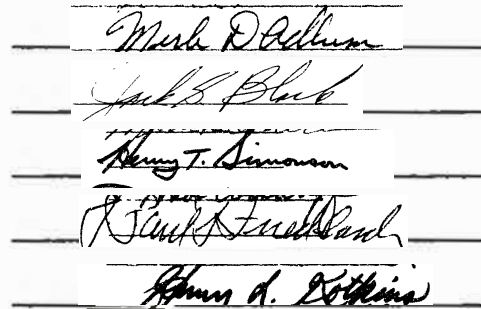 Merle D Adlum
Jack S Block
Henry T. Simonson
Paul S Friedland
Henry L. Kotkins